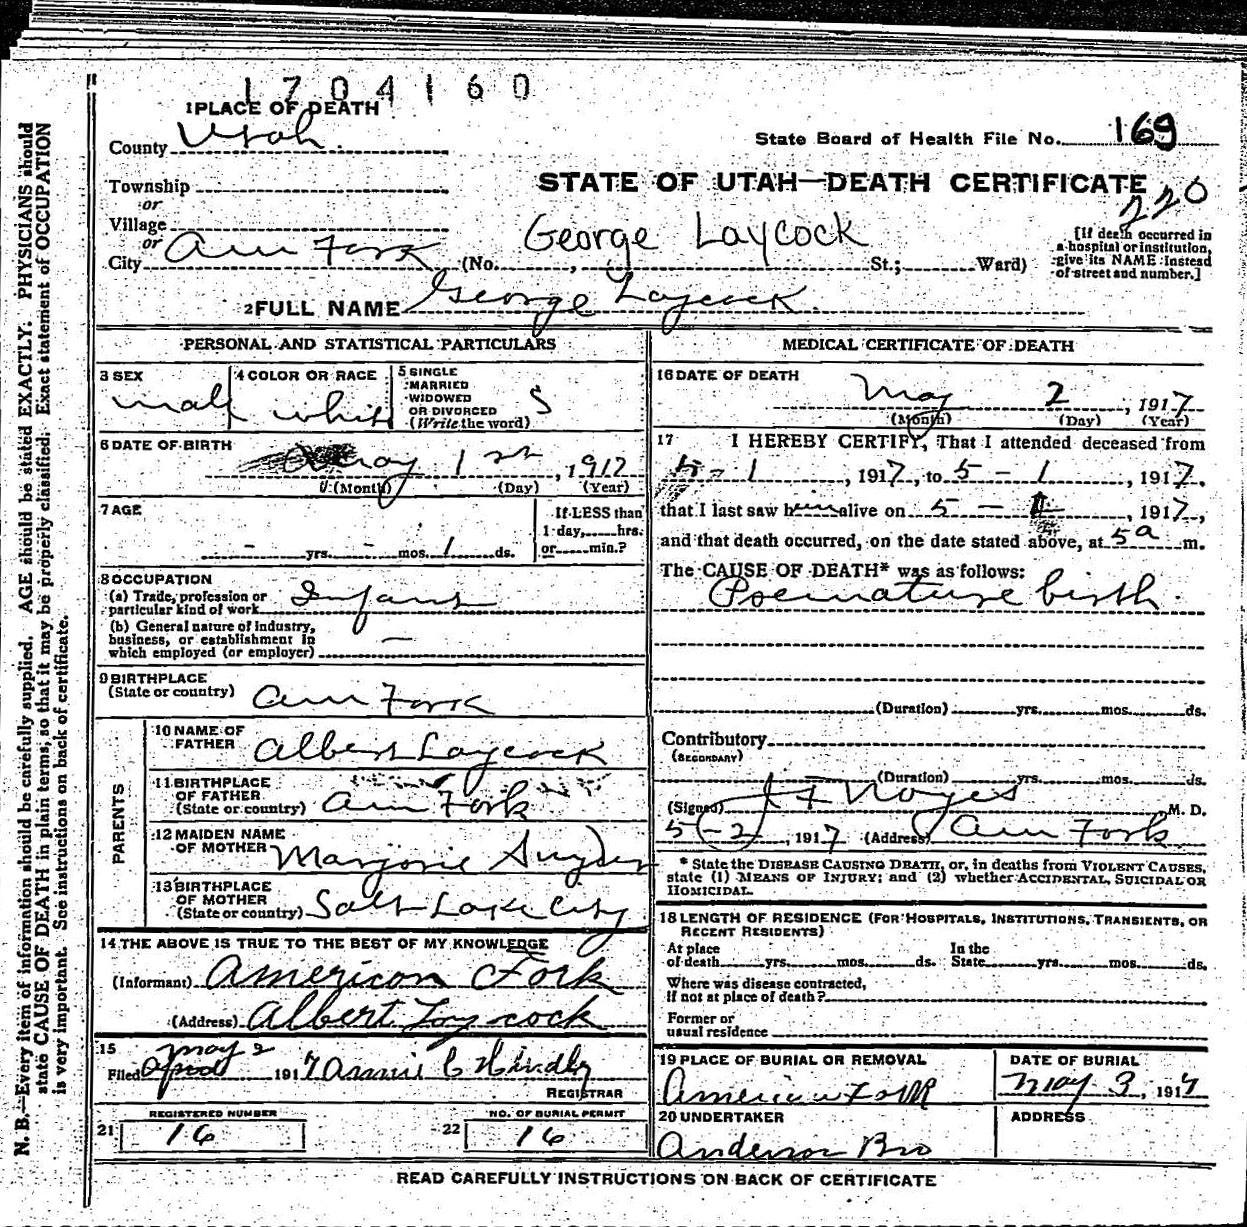 1704160
1 PLACE OF DEATH
County Utah
State Board of Health File No. 169
Township
or
STATE OF UTAH—DEATH CERTIFICATE
220
Village
or
George Laycock
City Am Fork (No. , St.; Ward)
[If death occurred in
a hospital or institution,
give its NAME instead
of street and number.]
2 FULL NAME George Laycock
PERSONAL AND STATISTICAL PARTICULARS
3 SEX
male
4 COLOR OR RACE
white
5 SINGLE
MARRIED
WIDOWED
OR DIVORCED
(Write the word)
S
6 DATE OF BIRTH
May 1st, 1917
(Month) (Day) (Year)
7 AGE
- yrs. - mos. 1 ds.
If LESS than
1 day, hrs.
or min.?
8 OCCUPATION
(a) Trade, profession or
particular kind of work Infant
(b) General nature of industry,
business, or establishment in
which employed (or employer) —
9 BIRTHPLACE
(State or country) Am Fork
PARENTS
10 NAME OF
FATHER Albert Laycock
11 BIRTHPLACE
OF FATHER
(State or country) Am Fork
12 MAIDEN NAME
OF MOTHER Marjorie Snyder
13 BIRTHPLACE
OF MOTHER
(State or country) Salt Lake City
14 THE ABOVE IS TRUE TO THE BEST OF MY KNOWLEDGE
(Informant) American Fork
(Address) Albert Laycock
15
May 2
Filed 1917 Annie C Hindley
REGISTRAR
REGISTERED NUMBER
21 16
NO. OF BURIAL PERMIT
22 16
MEDICAL CERTIFICATE OF DEATH
16 DATE OF DEATH
May 2, 1917
(Month) (Day) (Year)
17 I HEREBY CERTIFY, That I attended deceased from
5 - 1, 1917, to 5 - 1, 1917.
that I last saw him alive on 5 - 1, 1917,
and that death occurred, on the date stated above, at 5 a m.
The CAUSE OF DEATH* was as follows:
Premature birth.
(Duration) yrs. mos. ds.
Contributory
(SECONDARY)
(Duration) yrs. mos. ds.
(Signed) J F Noyes M. D.
5-2, 1917 (Address) Am Fork
* State the DISEASE CAUSING DEATH, or, in deaths from VIOLENT CAUSES,
state (1) MEANS OF INJURY; and (2) whether ACCIDENTAL, SUICIDAL OR
HOMICIDAL.
18 LENGTH OF RESIDENCE (FOR HOSPITALS, INSTITUTIONS, TRANSIENTS, OR
RECENT RESIDENTS)
At place
of death yrs. mos. ds.
In the
State yrs. mos. ds.
Where was disease contracted,
if not at place of death?
Former or
usual residence
19 PLACE OF BURIAL OR REMOVAL
American Fork
DATE OF BURIAL
May 3, 1917
20 UNDERTAKER
Anderson Bro
ADDRESS
READ CAREFULLY INSTRUCTIONS ON BACK OF CERTIFICATE
N. B.—Every item of information should be carefully supplied. AGE should be stated EXACTLY. PHYSICIANS should
state CAUSE OF DEATH in plain terms, so that it may be properly classified. Exact statement of OCCUPATION
is very important. See instructions on back of certificate.